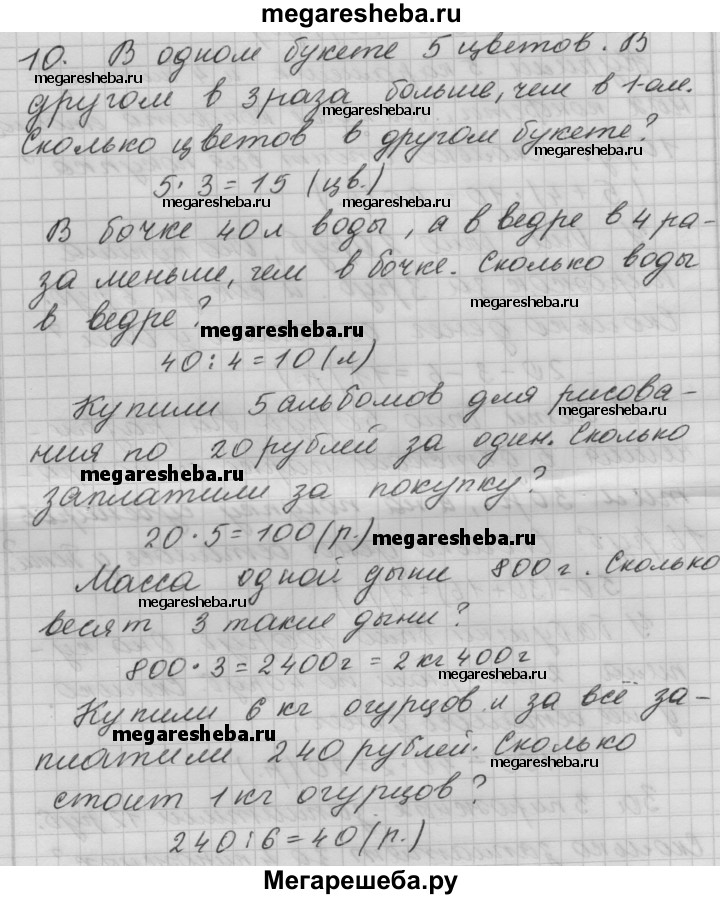 megaresheba.ru
10. В одном букете 5 цветов. В
megaresheba.ru
megaresheba.ru
другом в 3 раза больше, чем в 1-ом.
megaresheba.ru
Сколько цветов в другом букете?
megaresheba.ru
5 · 3 = 15 (цв.)
megaresheba.ru
megaresheba.ru
В бочке 40 л воды, а в ведре в 4 ра-
за меньше, чем в бочке. Сколько воды
megaresheba.ru
в ведре?
megaresheba.ru
40 : 4 = 10 (л)
Купили 5 альбомов для рисова-
megaresheba.ru
ния по 20 рублей за один. Сколько
megaresheba.ru
заплатили за покупку?
20 · 5 = 100 (р.)
megaresheba.ru
Масса одной дыни 800 г. Сколько
megaresheba.ru
весят 3 такие дыни?
800 · 3 = 2400 г = 2 кг 400 г
megaresheba.ru
Купили 6 кг огурцов и за всё за-
megaresheba.ru
платили 240 рублей. Сколько
megaresheba.ru
стоит 1 кг огурцов?
240 : 6 = 40 (р.)
Мегарешеба.ру